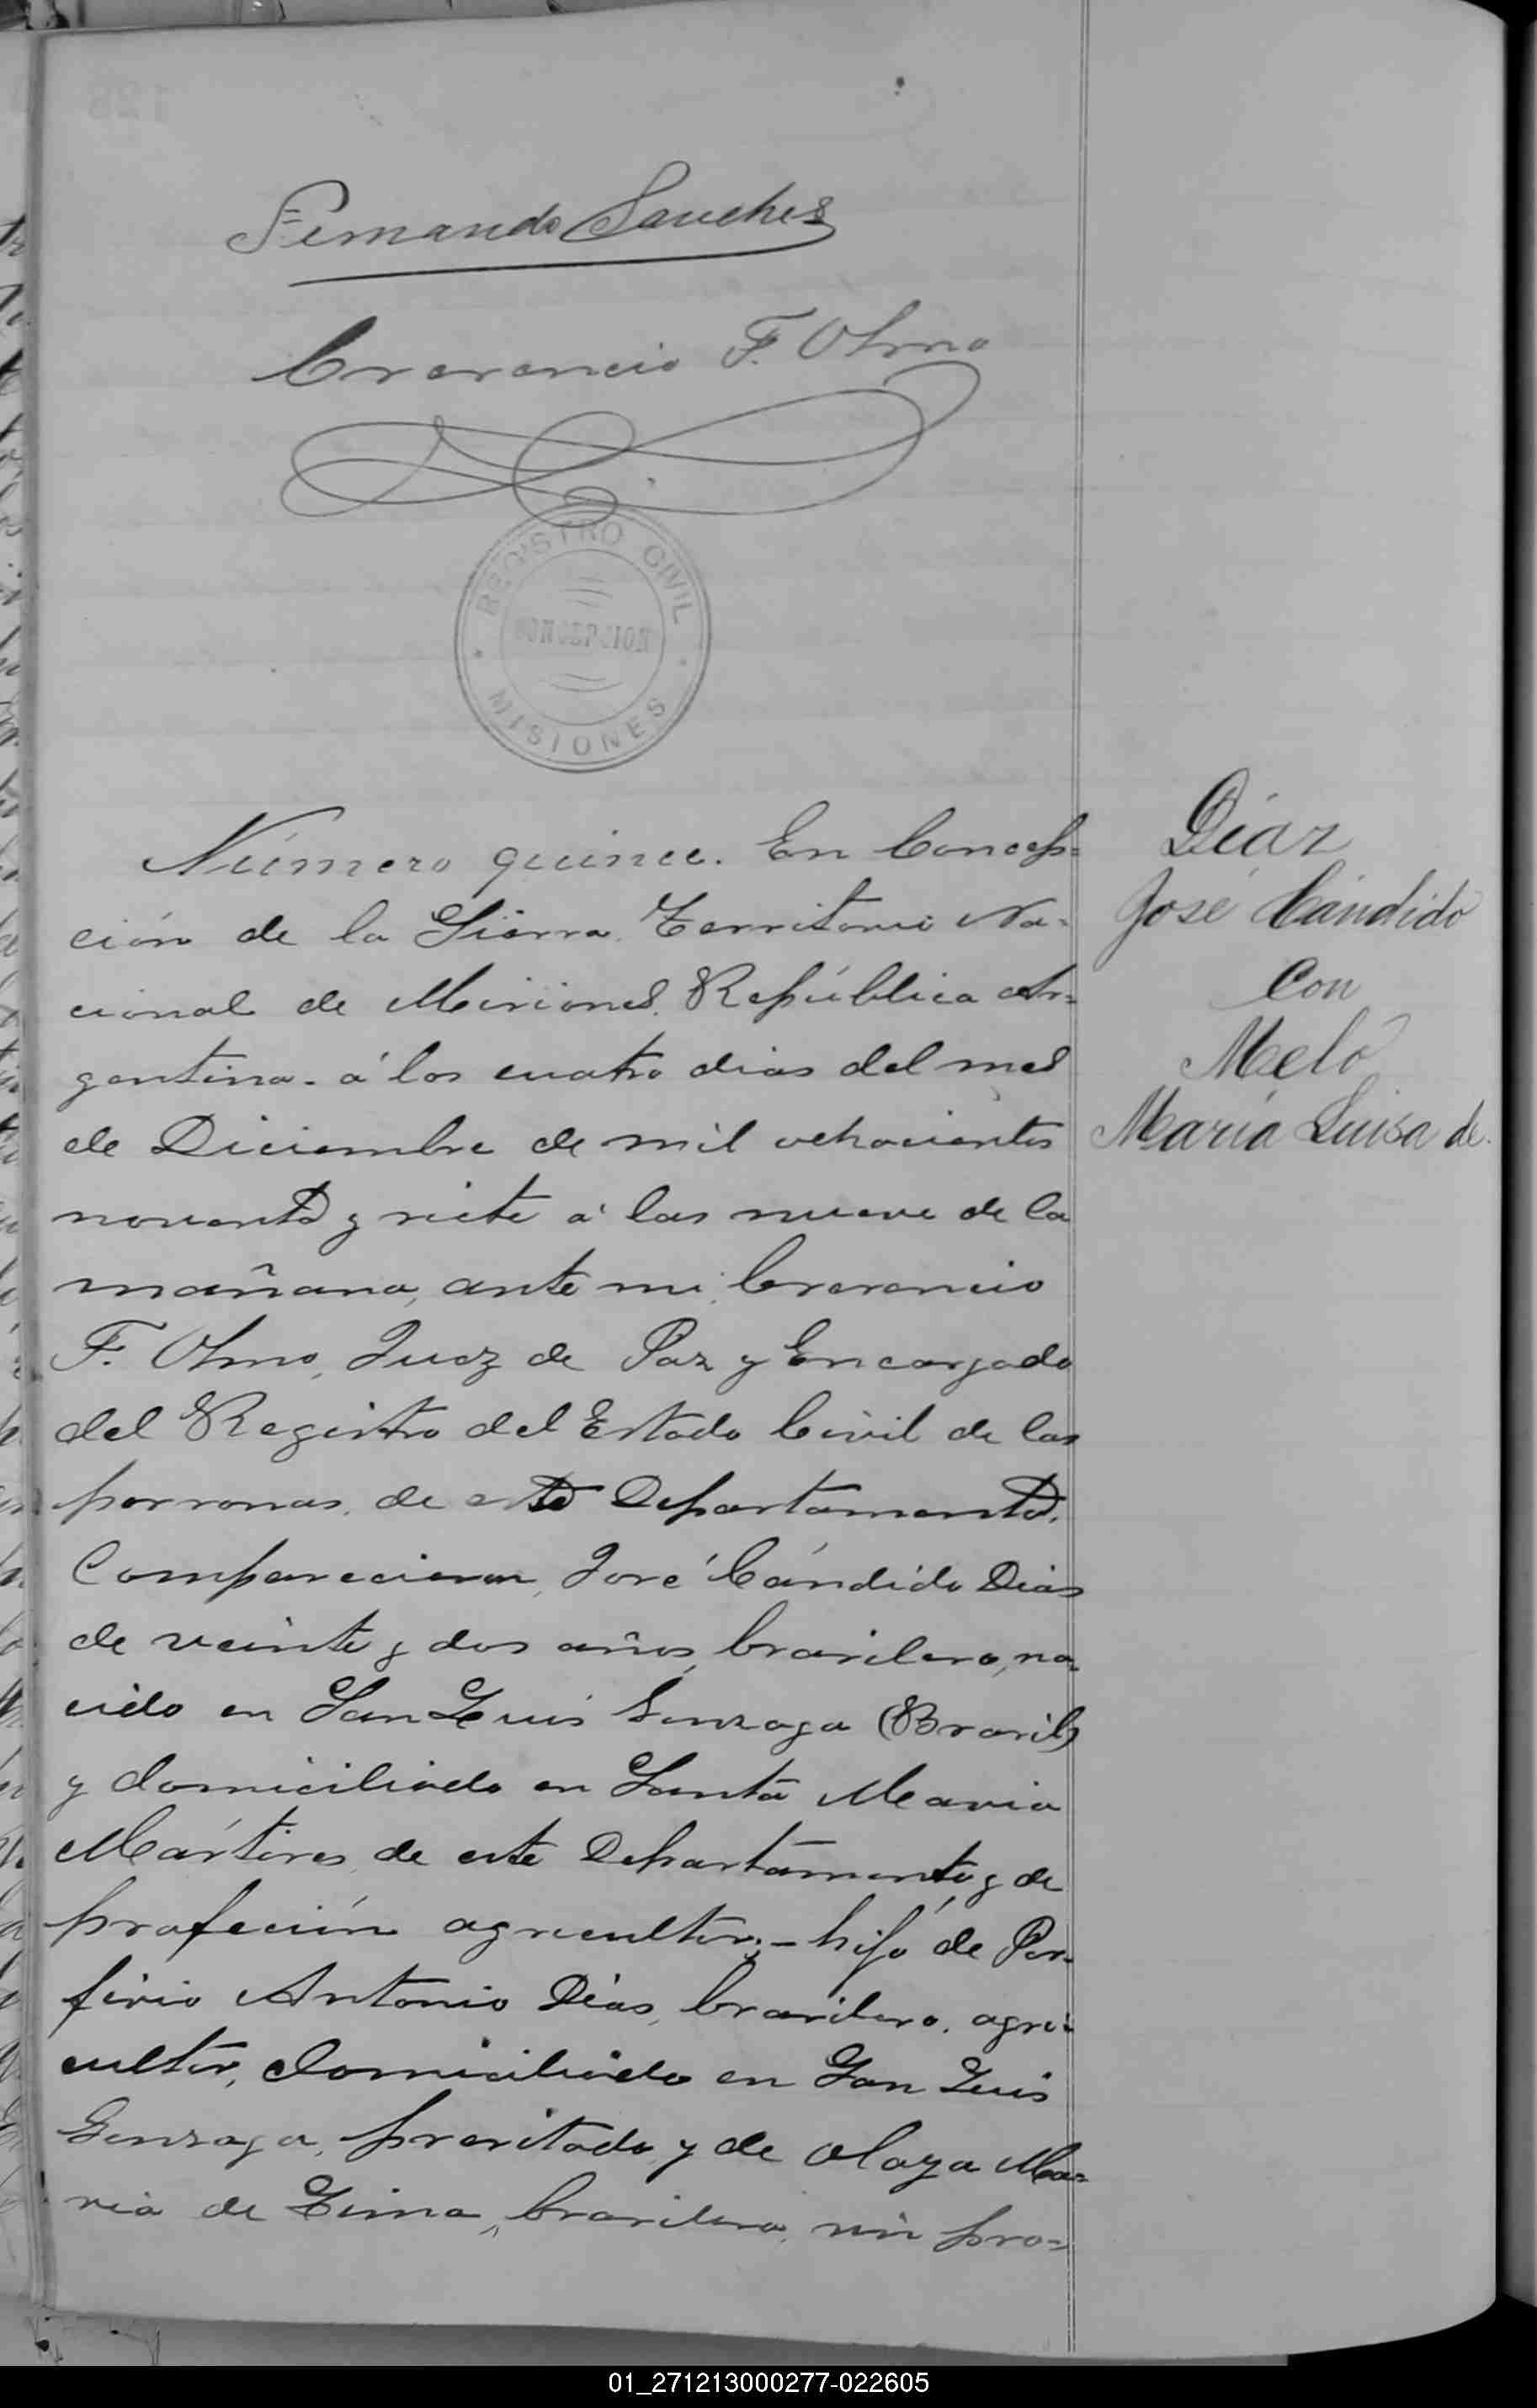 Fernando Sanches
Crarancio F. Olmo
REGISTRO CIVIL
CONCEPCION
MISIONES
Número quince. En Concep=
ción de la Sierra, Territorio Na=
cional de Misiones, República Ar=
gentina. á los cuatro dias del mes
de Diciembre de mil ochocientos
noventa y siete á las nueve de la
mañana, ante mi,
F. Olmo, Juez de Paz y Encargado
del Registro del Estado Civil de las
personas, de este Departamento.
Comparecieron, José Cándido Dias
de veinte y dos años, brasilero, na=
cido en San Luis Gonzaga (Brasil)
y domiciliado en Santa Maria
Mártires, de este Departamento y de
profeción agricultor;- hijo de Por=
firio Antonio Dias, brasilero, agri=
cultor, domiciliado en San Luis
Gonzaga, precitado y de Olaya Ma=
ria de Lima, brasilera, sin pro=
Díaz
José Cándido
Con
Meló
María Luisa de.
01_271213000277-022605